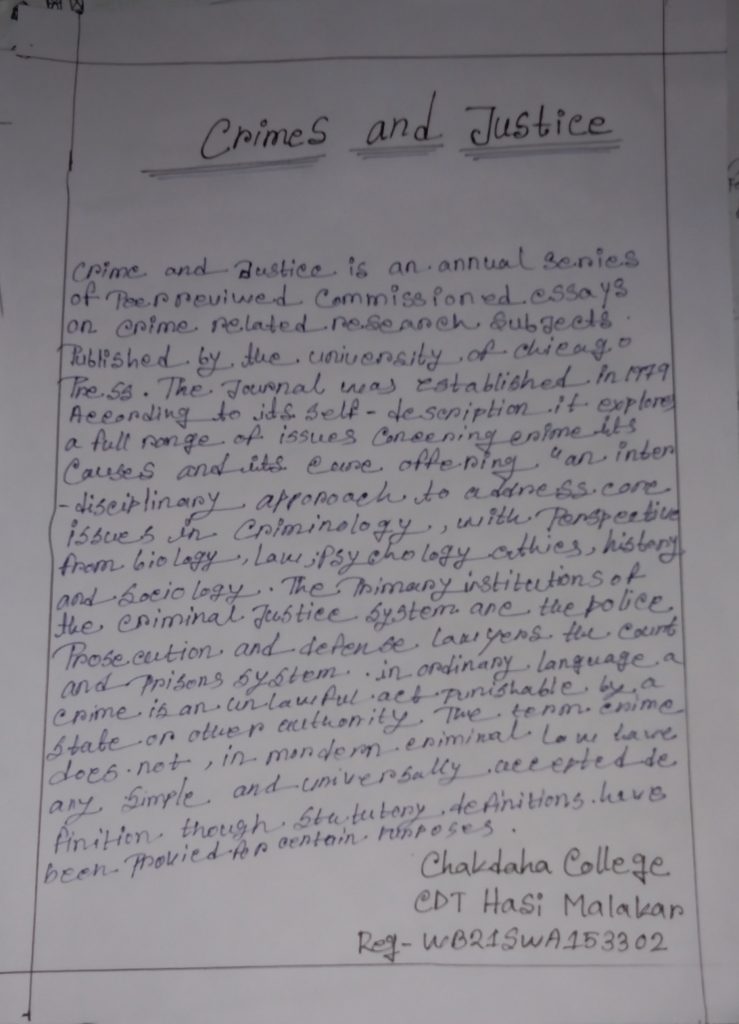 Crimes and Justice
Crime and Justice is an annual series
of Peerreviwed Commissioned essays
on crime related research Subjects.
Published by the university of chicago
Press. The Journal was established in 1979
According to its self-description it explores
a full range of issues Conceening crime its
Causes and its cure offering "an inter
-disciplinary approoach to address core
issues in Criminology, with Perspective
from biology, law, Psychology ethies, history
and Sociology. The Primary institutions of
the criminal Justice System are the police,
Prosecution and defense lawyers the court
and prisons system. in ordinary language a
crime is an unlawful act punishable by a
State or other authority. The term crime
does not, in mordern criminal law have
any Simple and universally accepted de
finition though Statutory definitions have
been Provied for certain Purposes.
Chakdaha College
CDT Hasi Malakar
Reg- WB21SWA153302